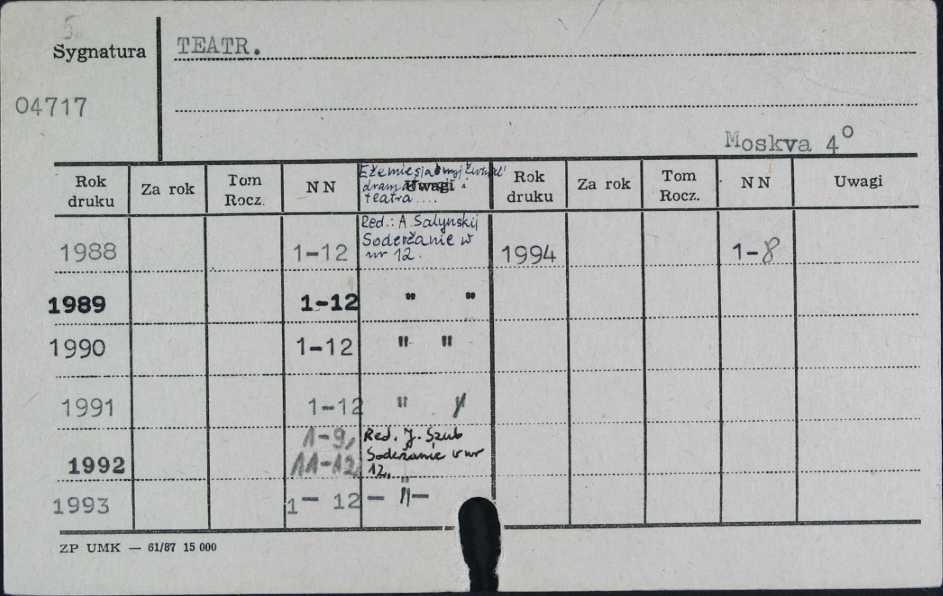 Sygnatura TEATR.
04717
Moskva 4°
Rok druku Za rok Tom Rocz. NN Uwagi Rok druku Za rok Tom Rocz. NN Uwagi
teatra....
Red.: A Salynskij
Soderžanie w
nr 12.
1988 1-12 1994 1-8
1989 1-12 " "
1990 1-12 " "
1991 1-12 " "
1-9, Red. J. Szub
1992 11-12, Soderžanie w nr
12.
1993 1-12 - " -
ZP UMK — 61/87 15 000